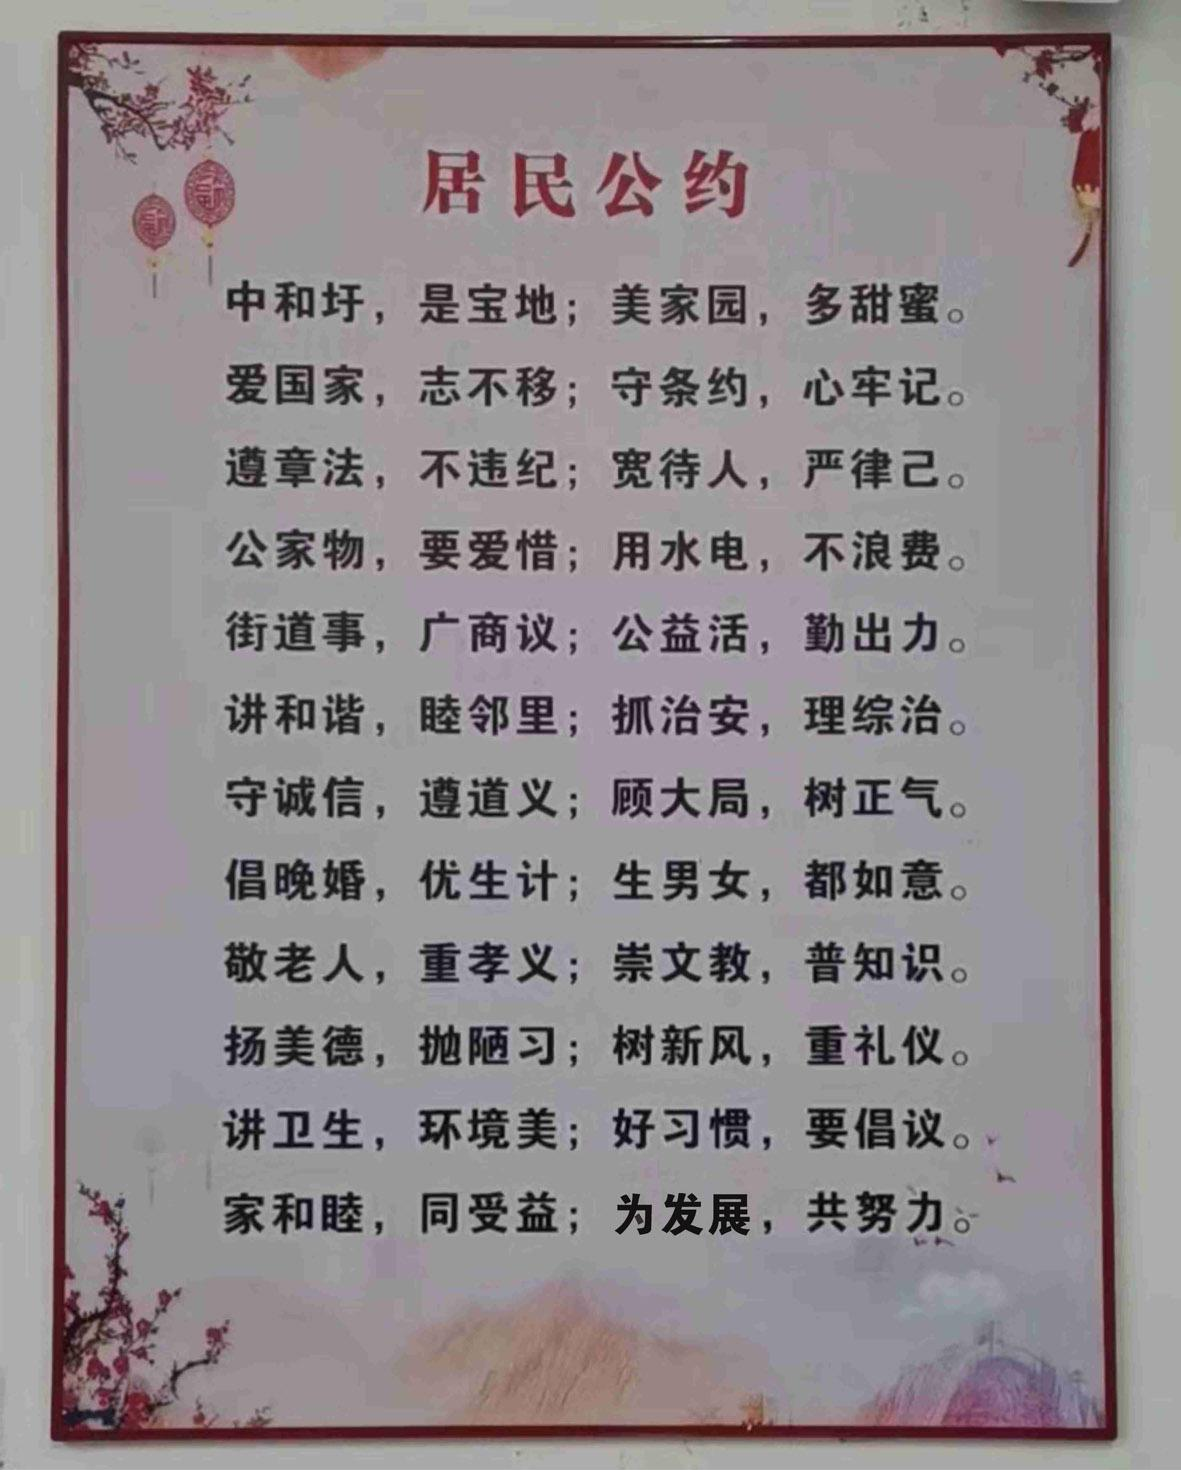 居民公约
中和圩，是宝地；美家园，多甜蜜。
爱国家，志不移；守条约，心牢记。
遵章法，不违纪；宽待人，严律己。
公家物，要爱惜；用水电，不浪费。
街道事，广商议；公益活，勤出力。
讲和谐，睦邻里；抓治安，理综治。
守诚信，遵道义；顾大局，树正气。
倡晚婚，优生计；生男女，都如意。
敬老人，重孝义；崇文教，普知识。
扬美德，抛陋习；树新风，重礼仪。
讲卫生，环境美；好习惯，要倡议。
家和睦，同受益；为发展，共努力。